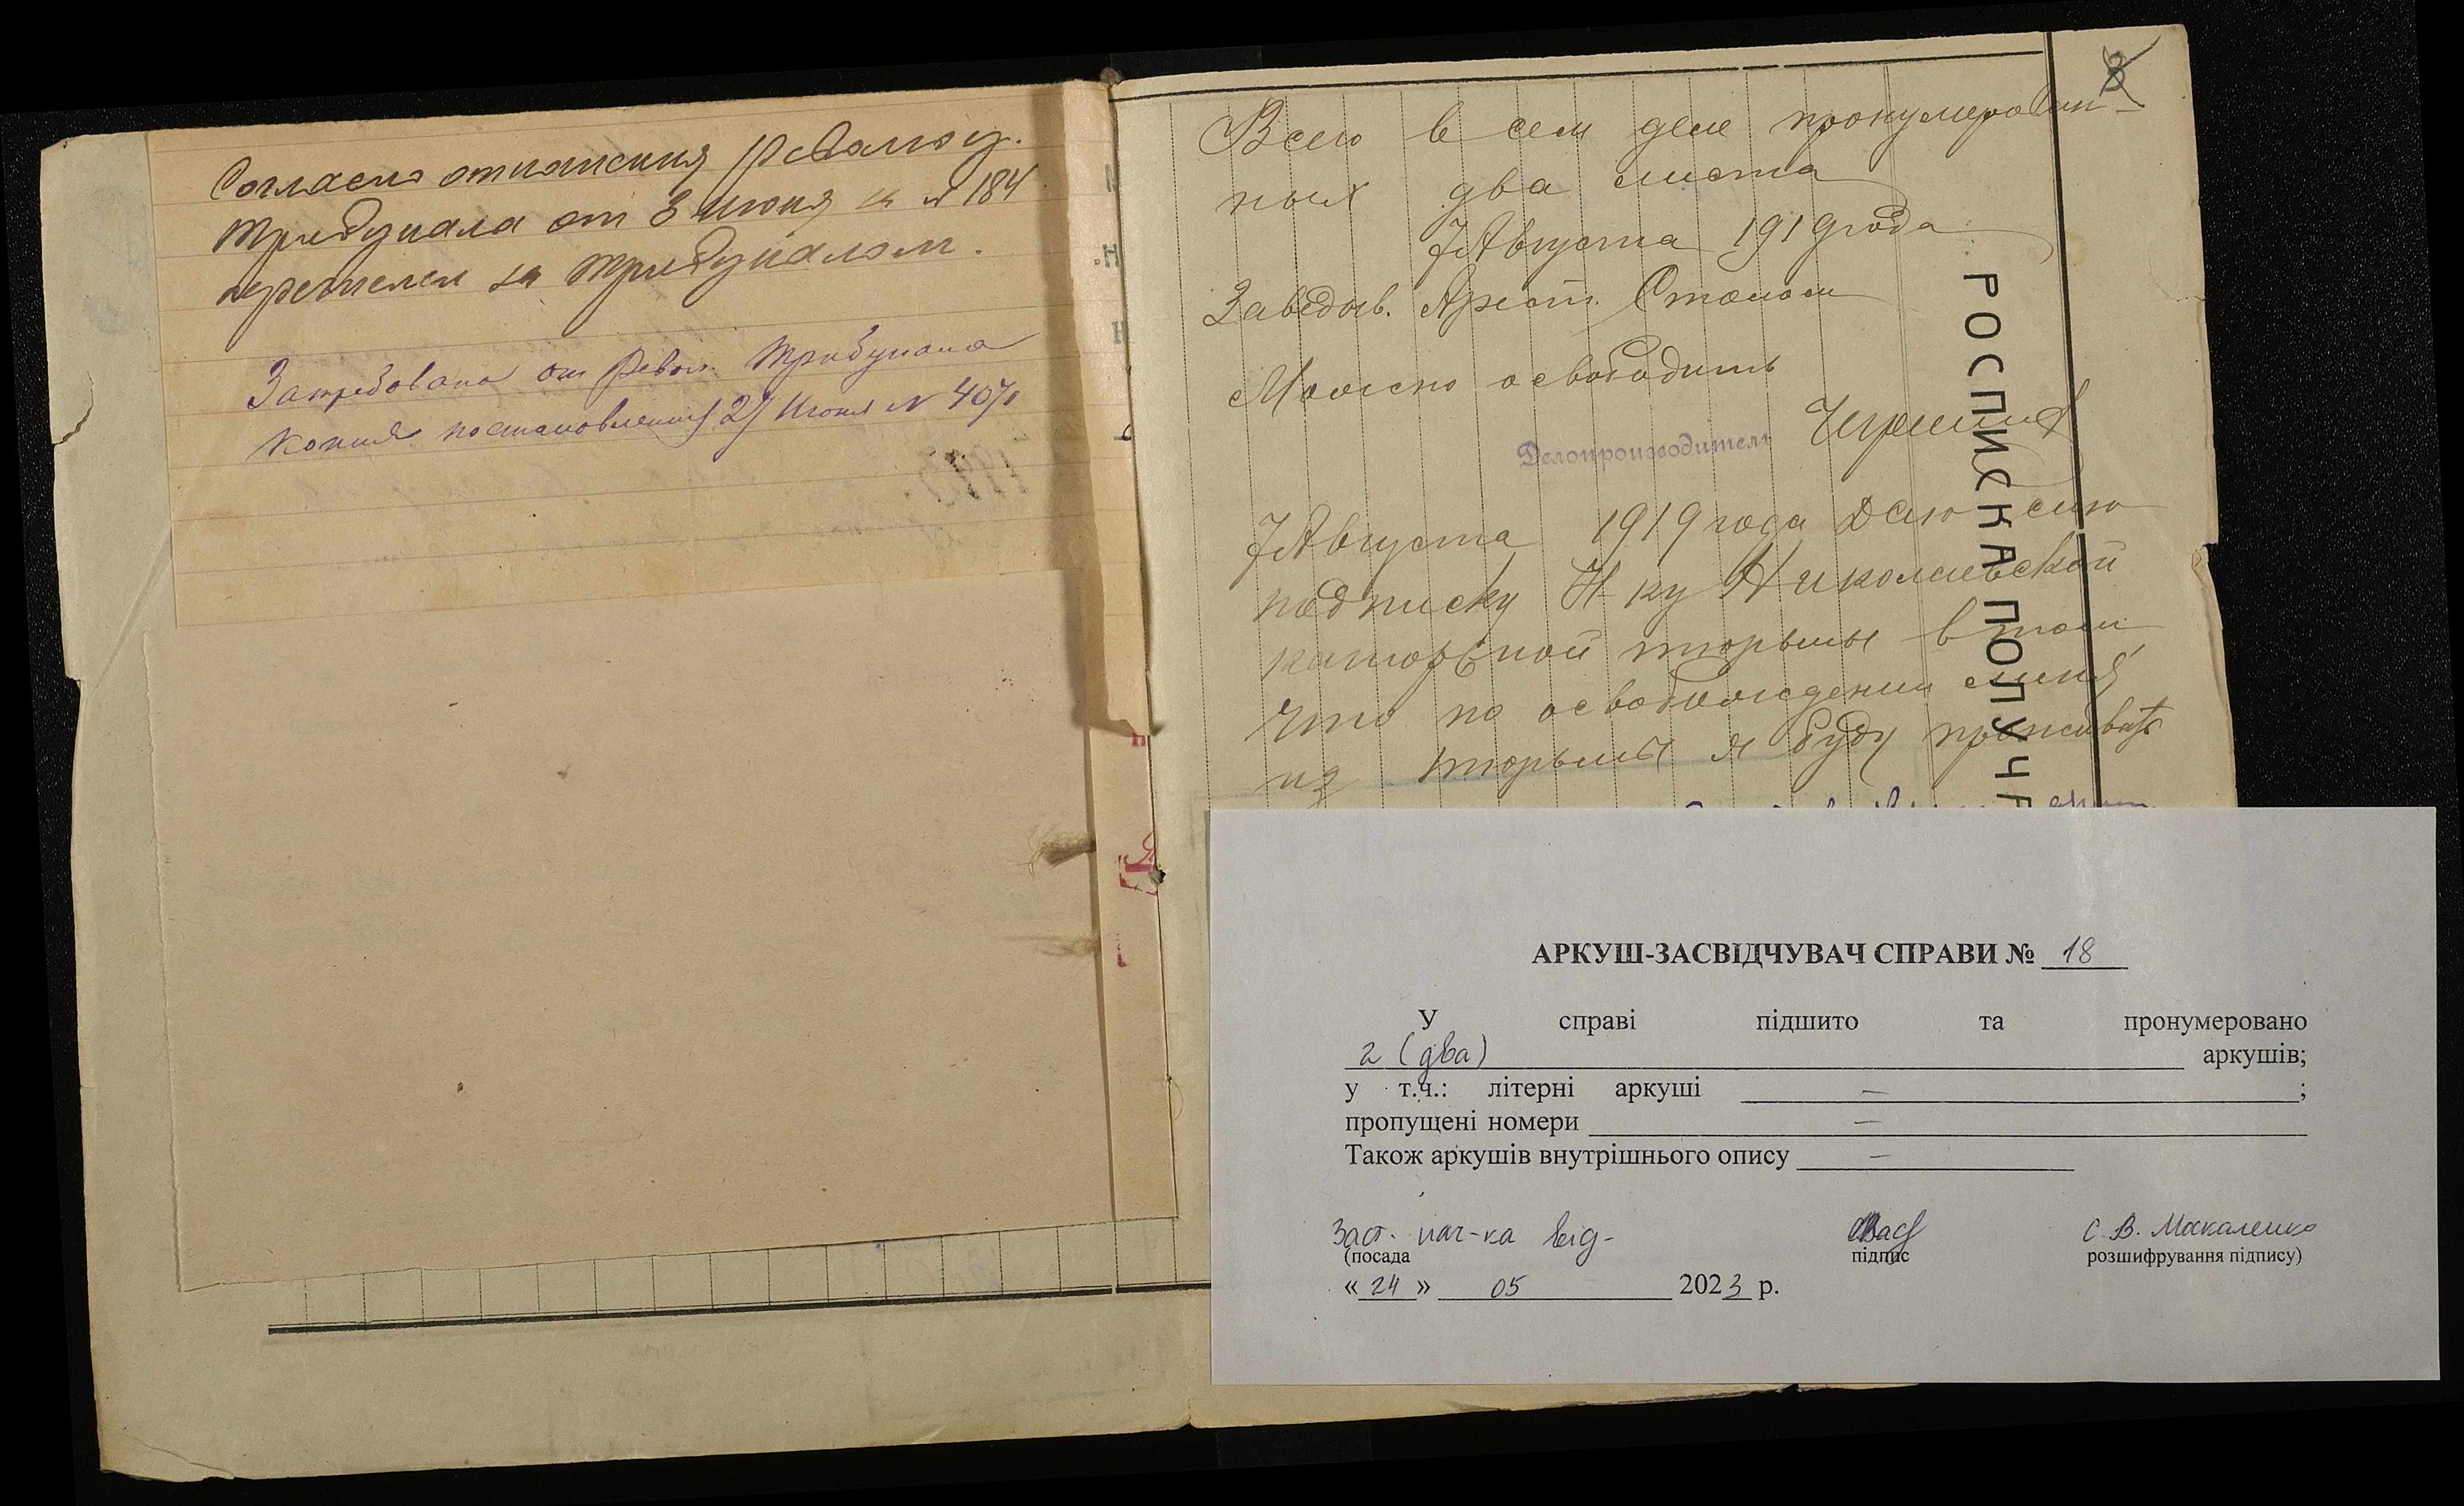 Согласно отношения Револ.
трибунала от 3 июня за № 184
перечислен за трибуналом.
Затребована от Револ. Трибунала
копия постановления 27 Июня № 4070
Всего в сем деле пронумерован-
ных два листа
7 Августа 1919 года
Заведыв. Арест. Столом
Можно освободить
Делопроизводитель
7 Августа 1919 года Даю сию
подписку Н-ку Николаевской
каторжной тюрьмы в том
что по освобождении меня
из тюрьмы я буду проживать
РОСПИСКА ПОЛУЧ
АРКУШ-ЗАСВІДЧУВАЧ СПРАВИ № 18
У справі підшито та пронумеровано
2 (два) аркушів;
у т.ч.: літерні аркуші — ;
пропущені номери —
Також аркушів внутрішнього опису —
Заст. нач-ка від- С. В. Макаленко
(посада підпис розшифрування підпису)
« 24 » 05 2023 р.